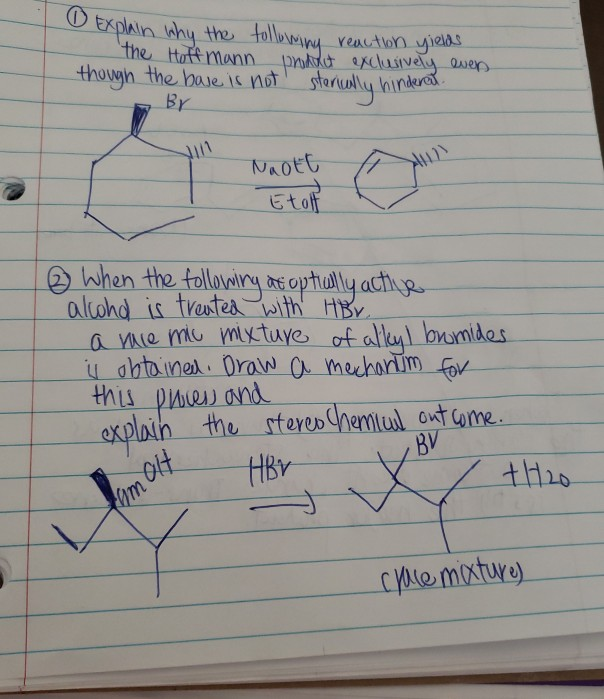 ① Explain why the following reaction yields
the Hoffmann product exclusively even
though the base is not sterically hindered.
Br
NaOEt
EtOH
② When the following as optically active
alcohol is treated with HBr,
a race mic mixture of alkyl bromides
is obtained. Draw a mechanism for
this process and
explain the stereochemical outcome.
OH
HBr
Br
+H2O
(race mixture)